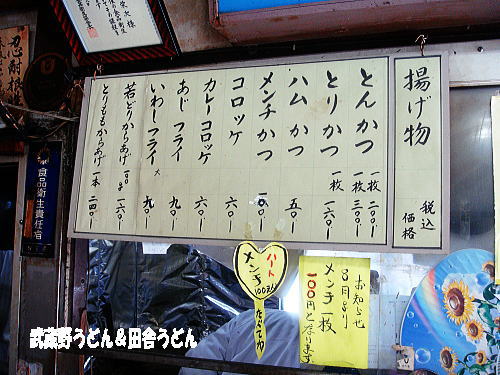 揚げ物 税込価格
とんかつ 一枚 二〇〇ー
一枚 三〇〇ー
とりかつ 一枚 一六〇ー
ハムかつ 五〇ー
メンチかつ 一〇〇ー
コロッケ 六〇ー
カレーコロッケ 六〇ー
あじフライ 九〇ー
いわしフライ 九〇ー
若どりからあげ 一〇〇g 一六〇ー
とりももからあげ 一本 二四〇ー
お知らせ
8月より
メンチ一枚
100円となります
ハート
メンチ
100えん
食品衛生責任者
武蔵野うどん&田舎うどん